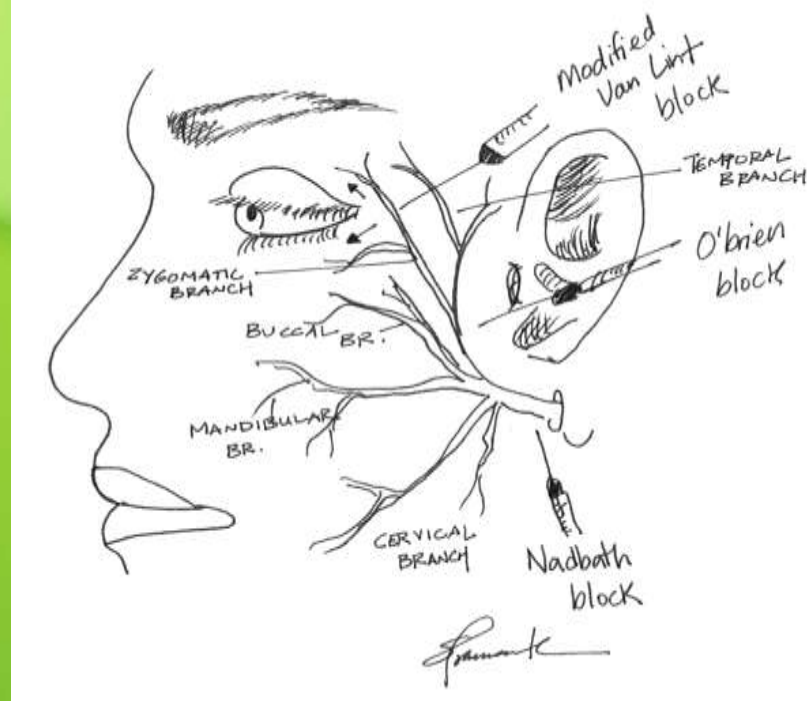 Modified
Van Lint
block
TEMPORAL
BRANCH
O'brien
block
ZYGOMATIC
BRANCH
BUCCAL
BR.
MANDIBULAR
BR.
CERVICAL
BRANCH
Nadbath
block